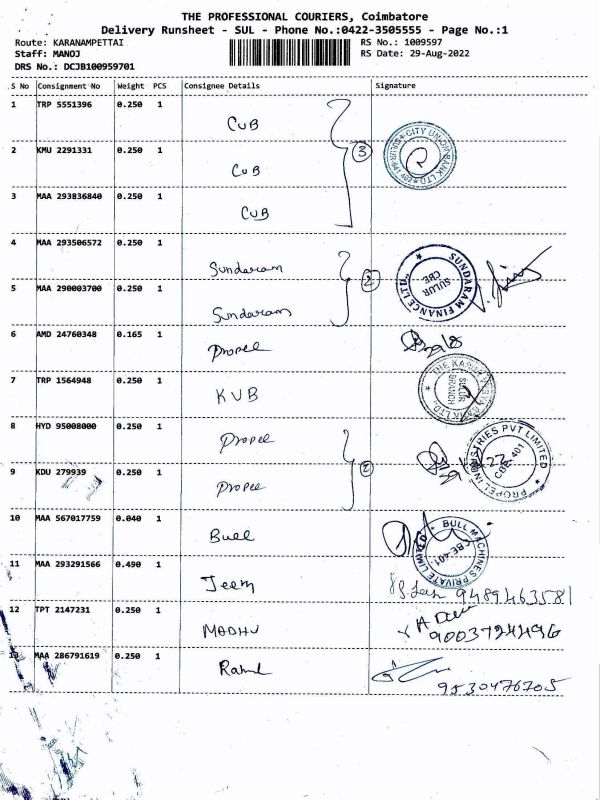 THE PROFESSIONAL COURIERS, Coimbatore
Delivery Runsheet - SUL - Phone No.:0422-3505555 - Page No.:1
Route: KARANAMPETTAI RS No.: 1009597
Staff: MANOJ RS Date: 29-Aug-2022
DRS No.: DCJB100959701
S No Consignment No Weight PCS Consignee Details Signature
1 TRP 5551396 0.250 1 CUB
2 KMU 2291331 0.250 1 CUB
3
CITY UNION BANK LTD
3 MAA 293836840 0.250 1 CUB
4 MAA 293506572 0.250 1 Sundaram
2
SUNDARAM FINANCE LTD.,
SULUR
CBE
5 MAA 290003700 0.250 1 Sundaram
6 AMD 24760348 0.165 1 Propel
7 TRP 1564948 0.250 1 KVB
SULUR
BRANCH
8 HYD 95008000 0.250 1 Propel
9 KDU 279939 0.250 1 Propel
2
PROPEL INDUSTRIES PVT LIMITED
CBE-401
10 MAA 567017759 0.040 1 Bull
BULL MACHINES PRIVATE LIMITED
CBE-401
11 MAA 293291566 0.490 1 Jeem
9489463581
12 TPT 2147231 0.250 1 MADHU
9003724496
13 MAA 286791619 0.250 1 Rahul
9530476705